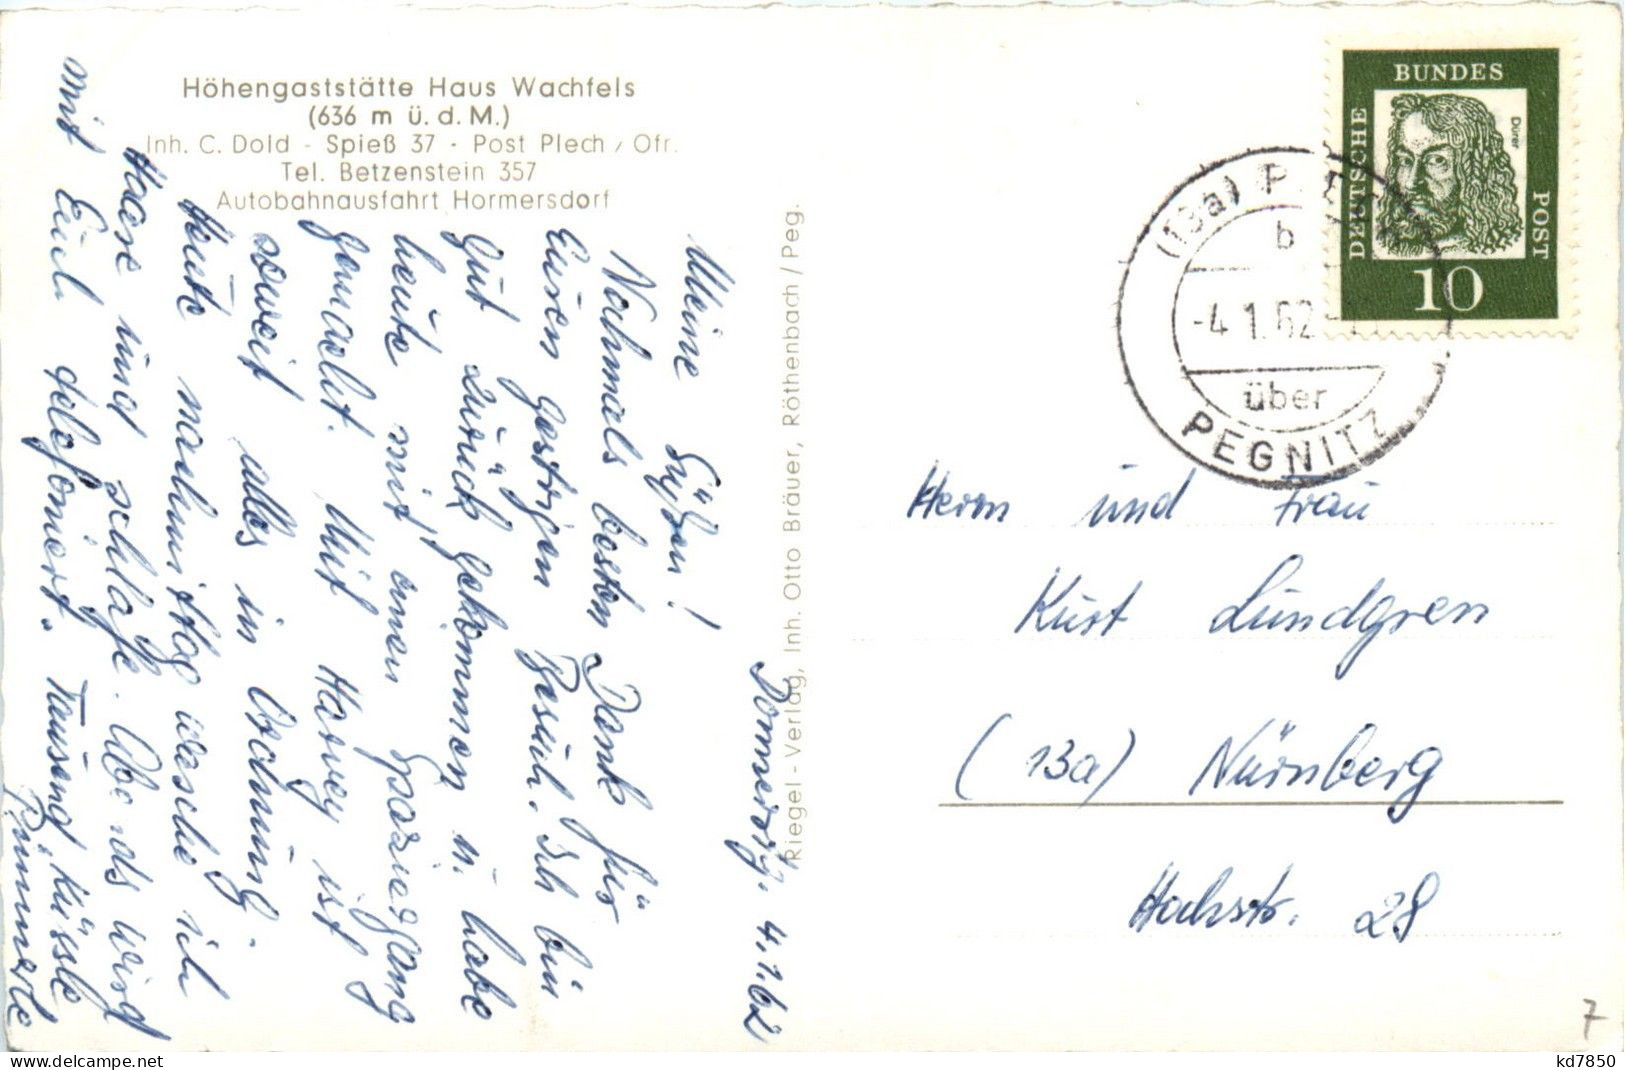 Höhengaststätte Haus Wachfels
(636 m ü. d. M.)
Inh. C. Dold - Spieß 37 - Post Plech / Ofr.
Tel. Betzenstein 357
Autobahnausfahrt Hormersdorf
Riegel-Verlag, Inh. Otto Bräuer, Röthenbach / Peg.
Donnerstg. 4.1.62
Meine Süßen!
Nochmals besten Dank für
Euren gestrigen Besuch. Ich bin
gut zurück gekommen u. habe
heute mit einen Spaziergang
gemacht. Mit Harvey ist
soweit alles in Ordnung.
Heute nachmittag wasche ich
Haare und schlafe. Abends wird
mit Euch telefoniert. Tausend Küssle
BUNDES
DEUTSCHE
POST
Dürer
10
(13a) P
b
-4.1.62
über
PEGNITZ
Herrn und Frau
Kurt Lundgren
(13a) Nürnberg
Hochstr. 28
7
www.delcampe.net
kd7850